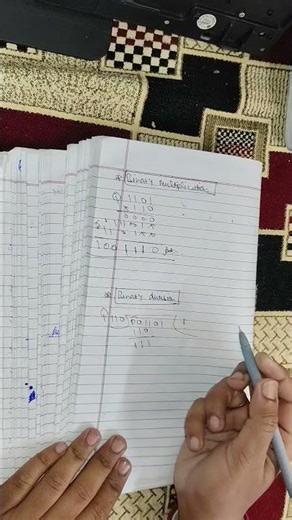 Binary Multiplication
Q 1101
× 110
0000
1101×
1101××
1001110 Ans
Binary division
Q 110) 1001101 (1
110
111